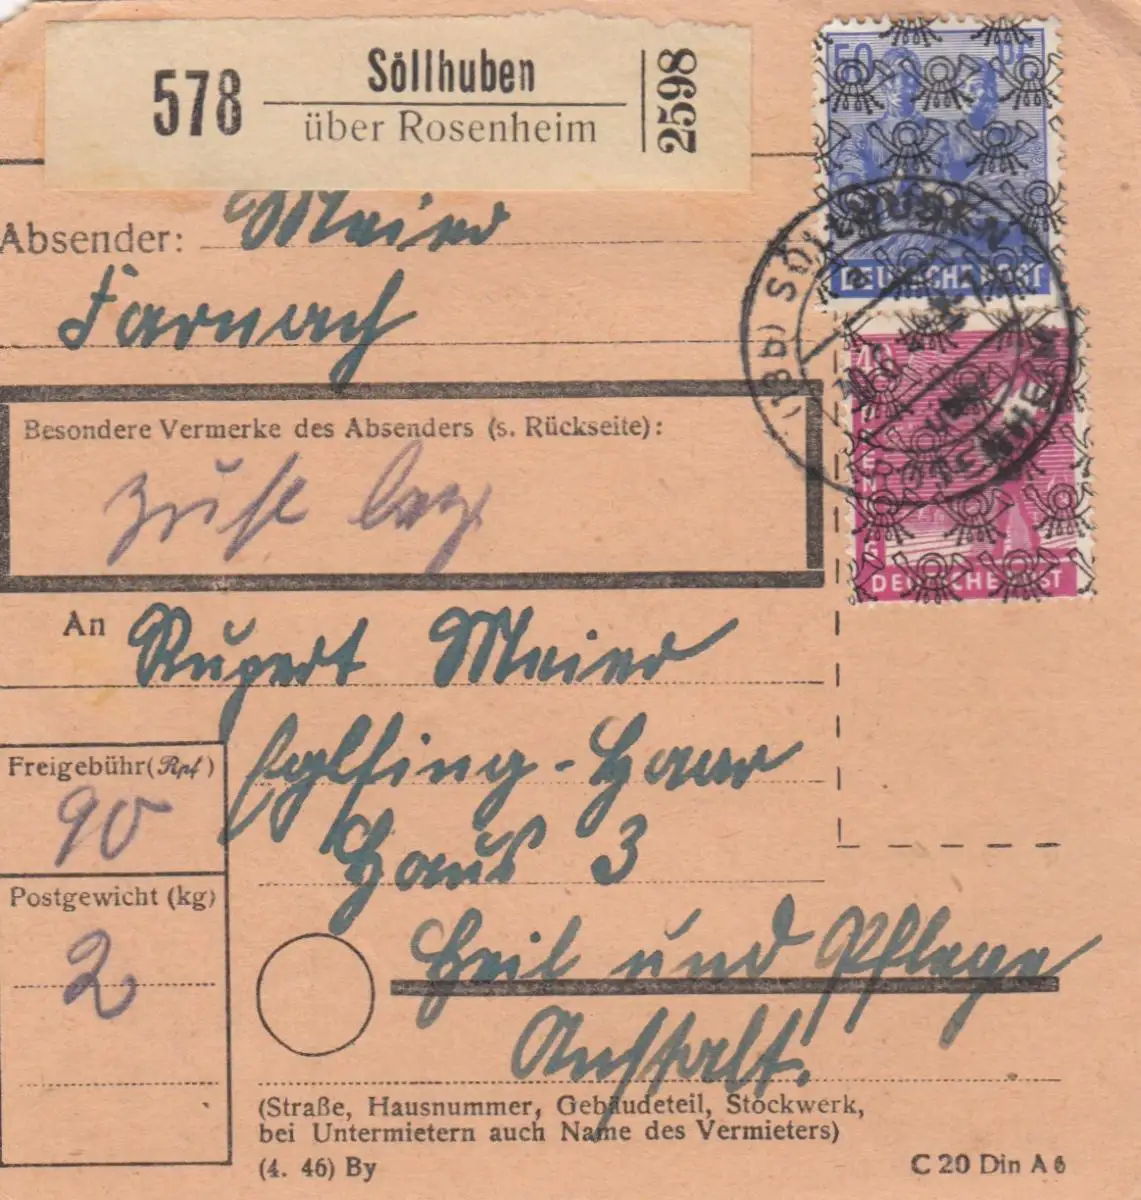 578
Söllhuben
über Rosenheim
2598
50 Pf
DEUTSCHE POST
(13b) SÖLLHUBEN
ROSENHEIM
40
DEUTSCHE POST
Absender: Maier
Farnach
Besondere Vermerke des Absenders (s. Rückseite):
An Rupert Maier
Eglfing-Haar
Haus 3
Heil und Pflege
Anstalt.
Freigebühr (Rpf)
90
Postgewicht (kg)
2
(Straße, Hausnummer, Gebäudeteil, Stockwerk,
bei Untermietern auch Name des Vermieters)
(4. 46) By
C 20 Din A 6